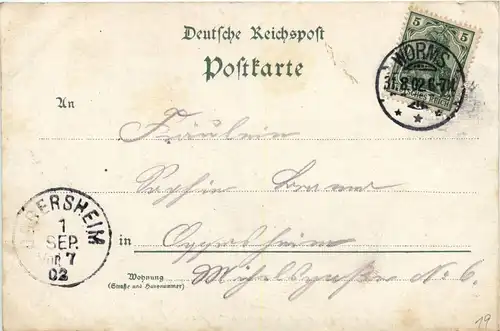 Deutsche Reichspost
Postkarte
5 5
WORMS
31.8.02.6-7N
An
Fräulein
Sophie
GERSHEIM
1
SEP.
7
02
in Oggersheim
Wohnung
(Straße und Hausnummer)
No 6.
19